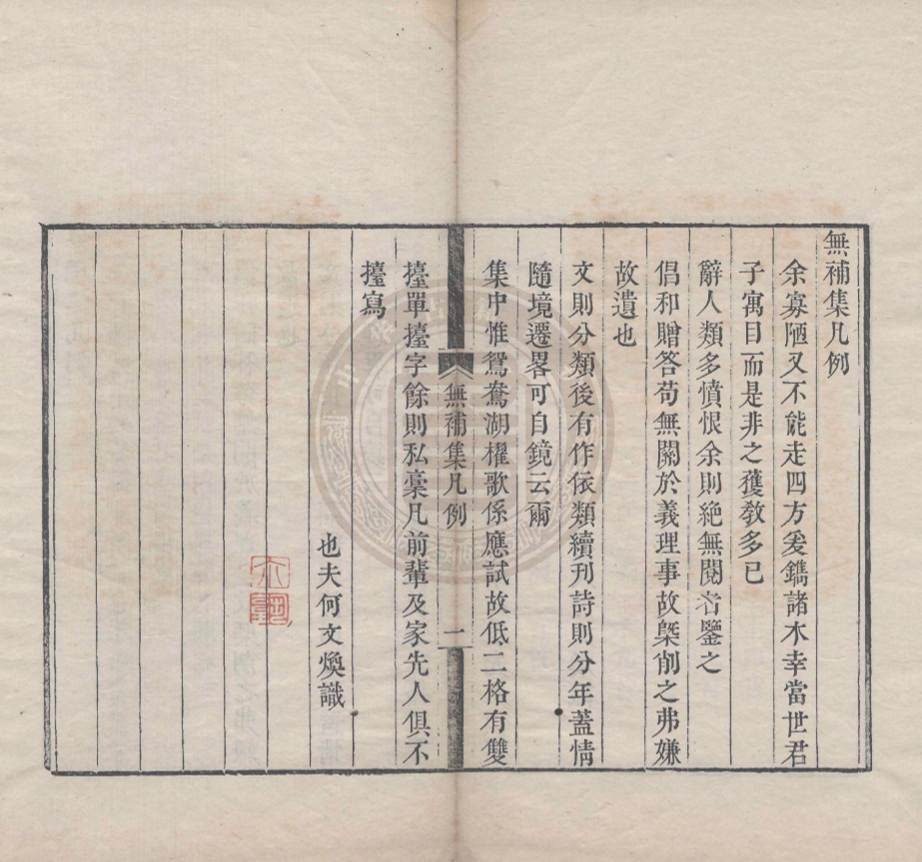 無補集凡例
余寡陋又不能走四方爰鐫諸木幸當世君
子寓目而是非之獲敎多已
辭人類多憤恨余則絶無閱者鑒之
倡和贈答苟無關於義理事故槩削之弗嫌
故遺也
文則分類後有作依類續刊詩則分年蓋情
隨境遷畧可自鏡云爾
集中惟鴛鴦湖櫂歌係應試故低二格有雙
無補集凡例
一
擡單擡字餘則私稾凡前輩及家先人俱不
擡寫
也夫何文煥識